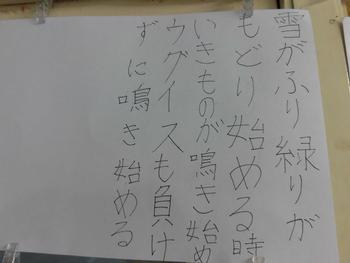 雪がふり緑りが
もどり始める時
いきものが鳴き始め
ウグイスも負け
ずに鳴き始める